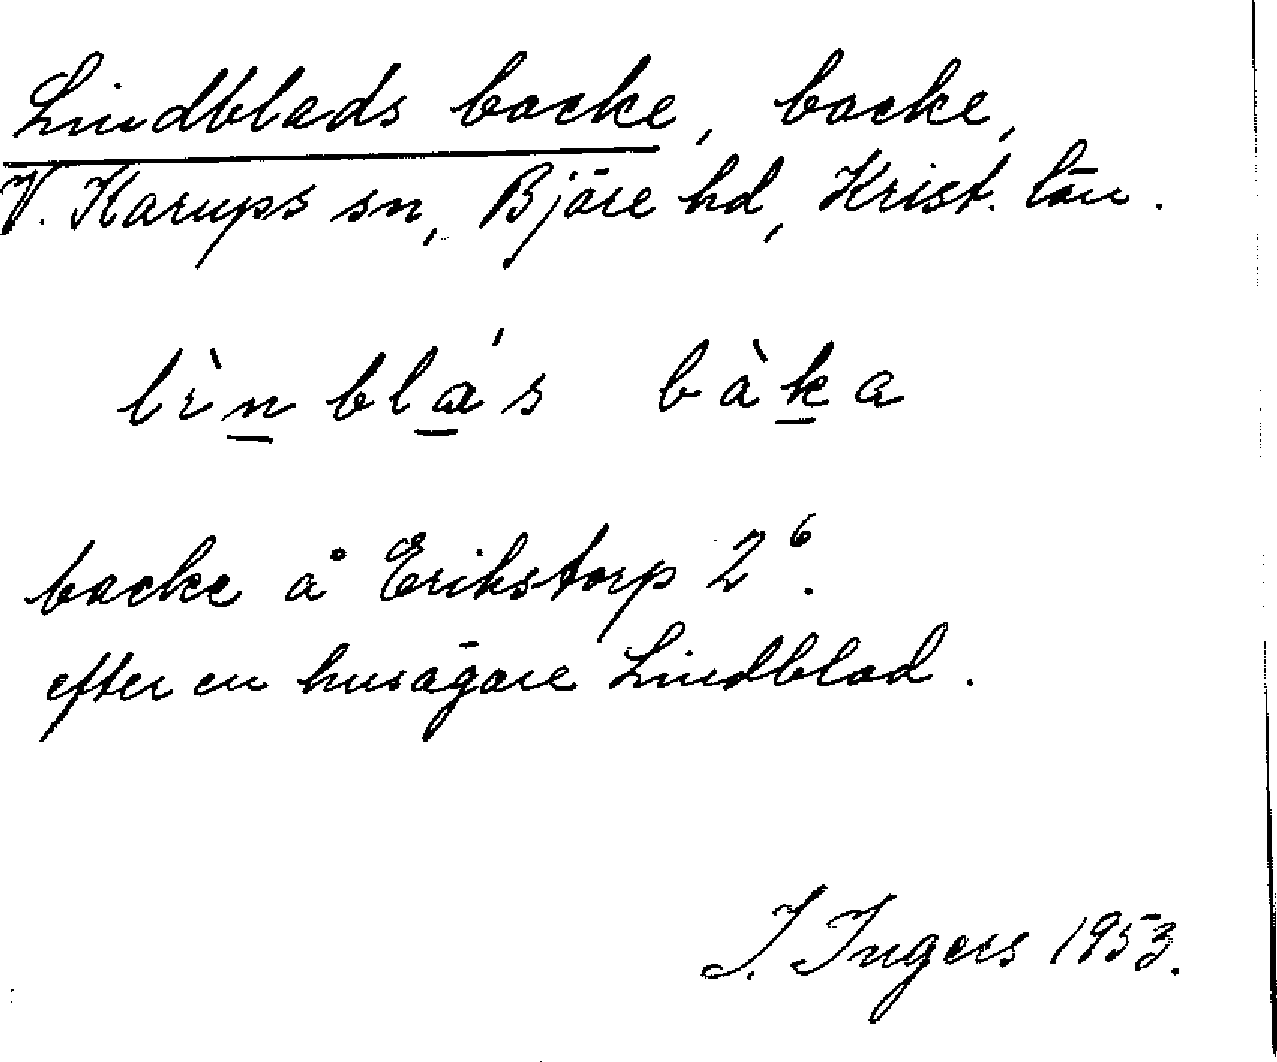 Lindblads backe, backe,
V. Karups sn, Bjäre hd, Krist. län.
lìn̲blά̲s bàk̲a
backe å Erikstorp 2⁶.
efter en husägare Lindblad.
I. Ingers 1953.